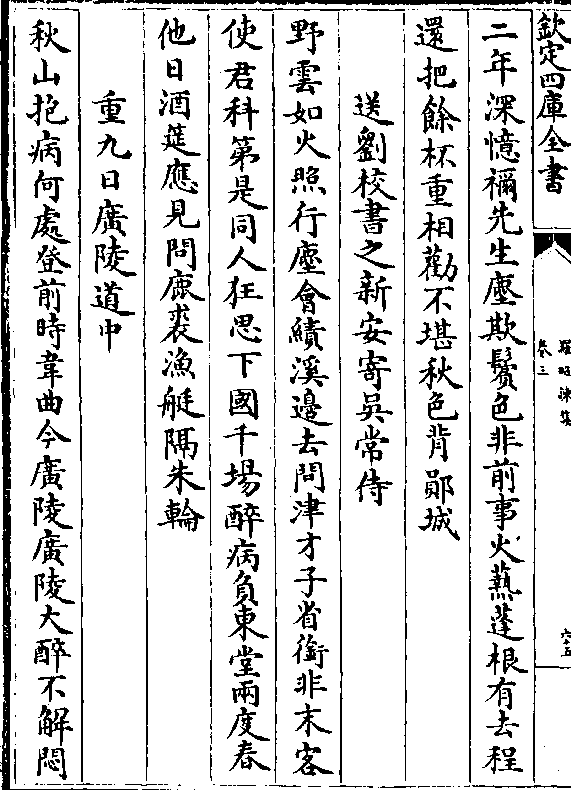 欽定四庫全書
羅昭諫集
卷三
六五
二年深憶禰先生塵欺鬢色非前事火爇蓬根有去程
還把餘杯重相勸不堪秋色背鄖城
送劉校書之新安寄吳常侍
野雲如火照行塵會績溪邊去問津才子省銜非末客
使君科第是同人狂思下國千場醉病負東堂兩度春
他日酒筵應見問鹿裘漁艇隔朱輪
重九日廣陵道中
秋山抱病何處登前時韋曲今廣陵廣陵大醉不解悶